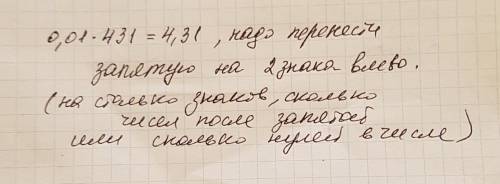 0,01 · 431 = 4,31 , надо перенести
запятую на 2 знака влево.
(на столько знаков, сколько
чисел после запятой
или сколько нулей в числе)